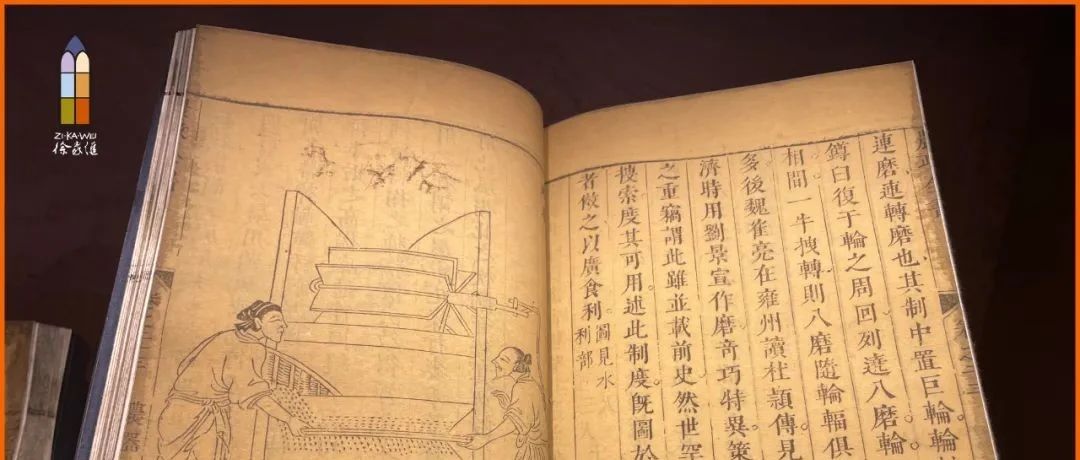 ZI-KA-WEI
徐家匯
連磨連轉磨也其制中置巨輪輪
鐏臼復于輪之周回列遶八磨輪
相間一牛拽轉則八磨隨輪輻俱
多後魏崔亮在雍州讀杜頴傳見
濟時用劉景宣作磨奇巧特異策
之重竊謂此雖並載前史然世罕
搜索度其可用述此制度既圖於
者倣之以廣食利
圖見水
利部